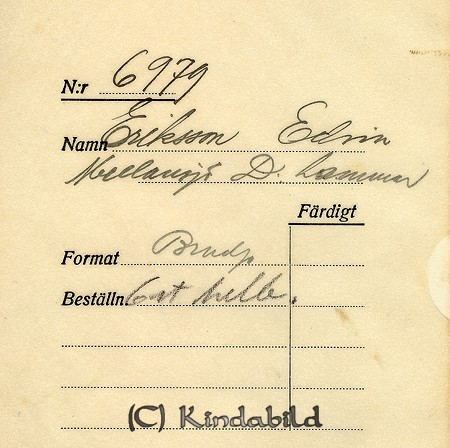 N:r 6979
Namn Eriksson Edvin
Mellansjö D. Lammer
Färdigt
Format Brudp.
Beställn. 6 st helb.
(C) Kindabild